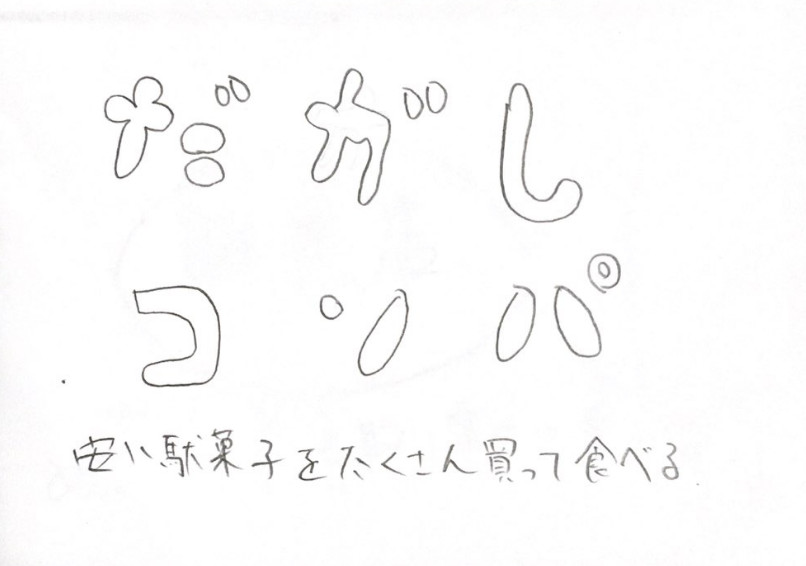 だがし
コンパ
安い駄菓子をたくさん買って食べる.